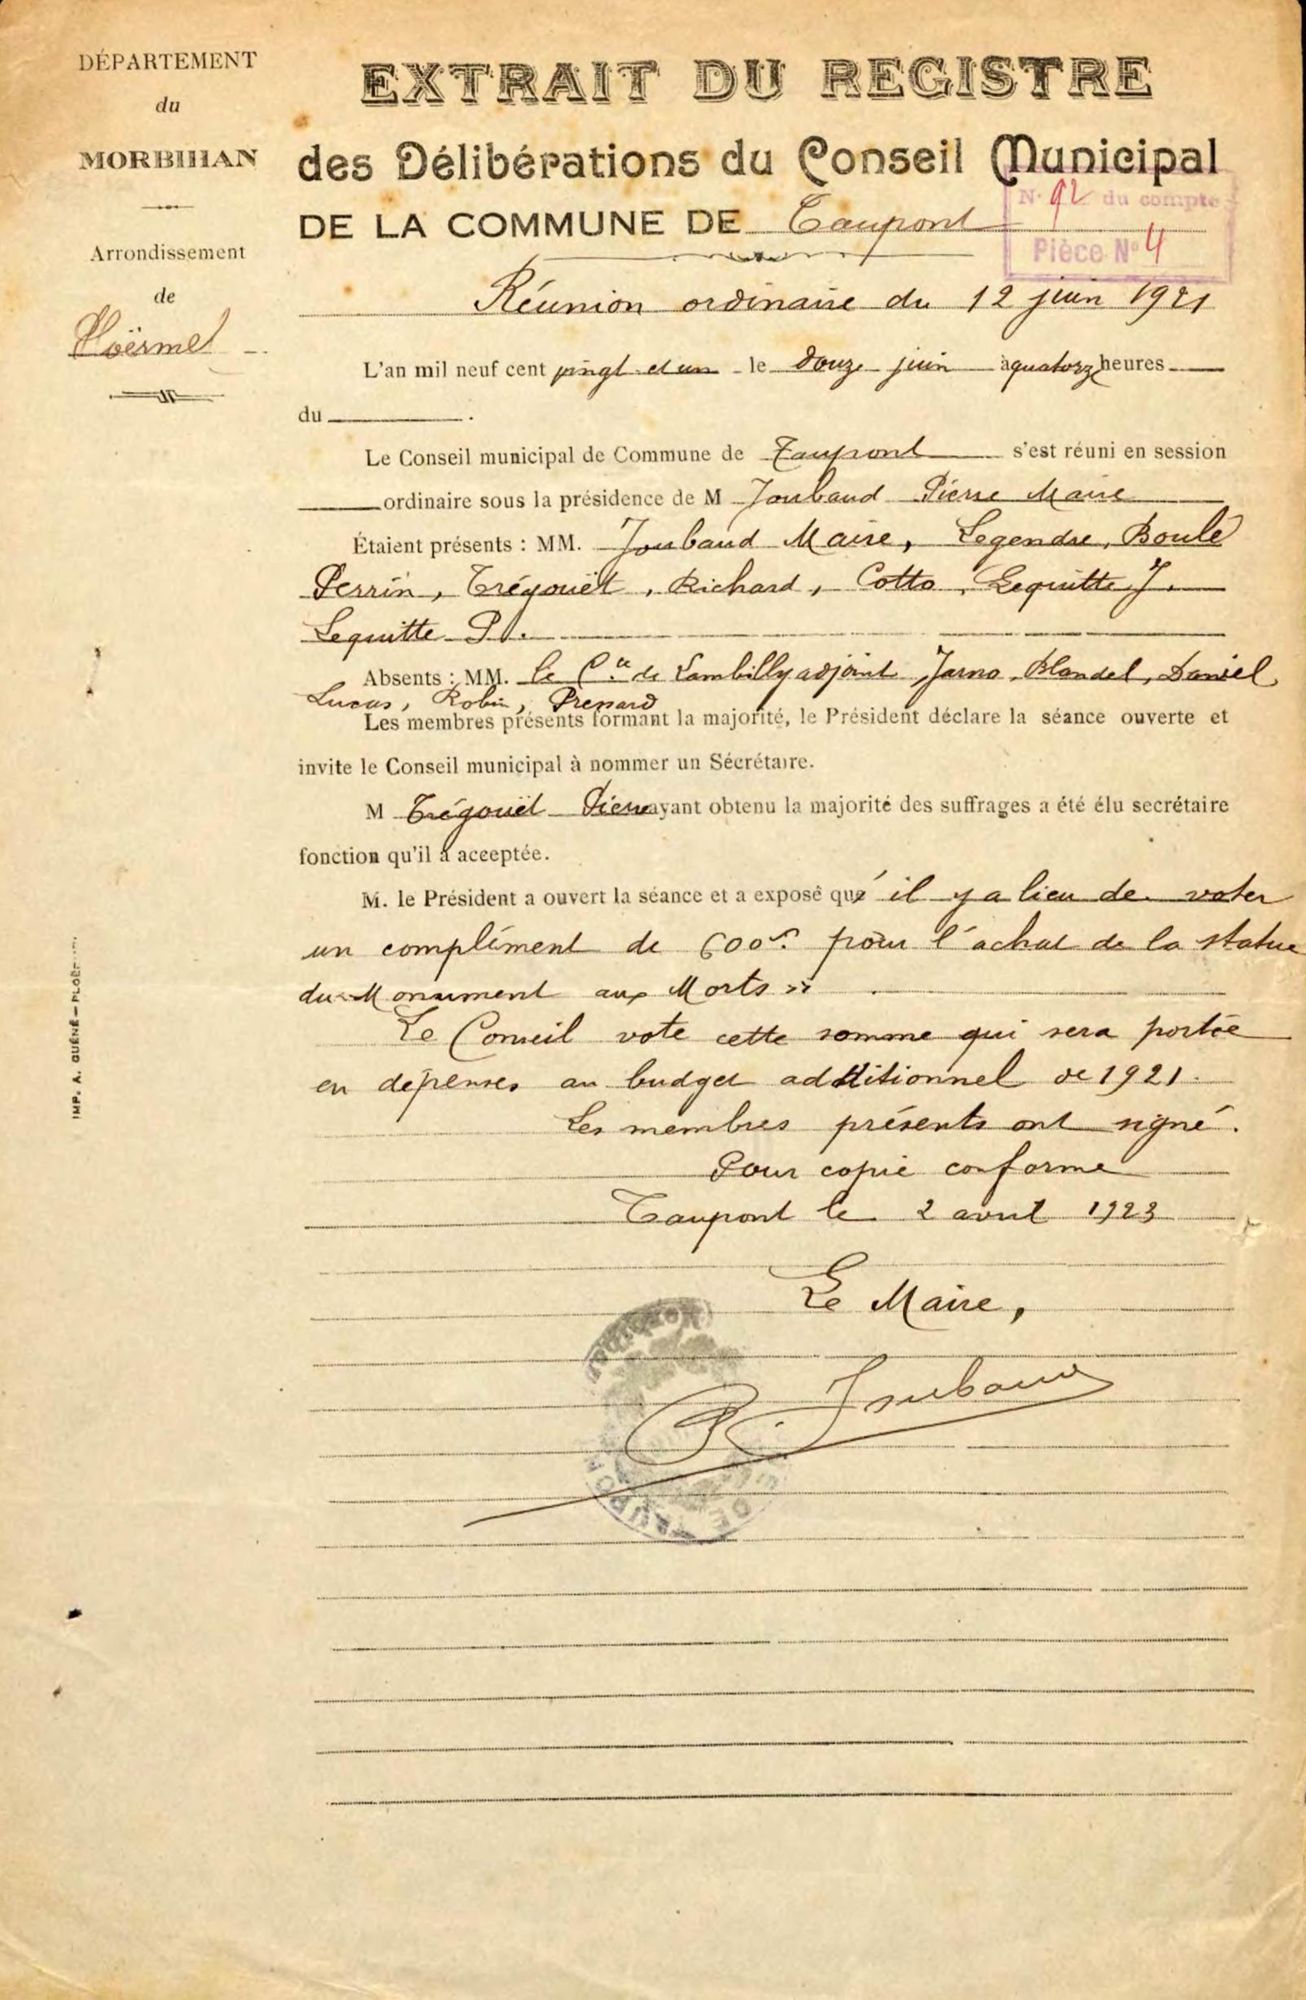 DÉPARTEMENT
du
MORBIHAN
Arrondissement
de
Ploërmel
EXTRAIT DU REGISTRE
des Délibérations du Conseil Municipal
DE LA COMMUNE DE Taupont
N° 92 du compte
Pièce N° 4
Réunion ordinaire du 12 juin 1921
L'an mil neuf cent vingt et un le douze juin à quatorze heures
du .
Le Conseil municipal de Commune de Taupont s'est réuni en session
ordinaire sous la présidence de M Joubaud Pierre Maire
Étaient présents : MM. Joubaud Maire, Legendre, Boulé
Perrin, Trégouët, Richard, Cotto, Lequitte J.
Lequitte P.
Absents : MM. le Cte de Lambilly adjoint, Jarno, Blandel, Daniel
Lucas, Robin,
Les membres présents formant la majorité, le Président déclare la séance ouverte et
invite le Conseil municipal à nommer un Sécrétaire.
M Trégouët Pierre ayant obtenu la majorité des suffrages a été élu secrétaire
fonction qu'il a acceptée.
M. le Président a ouvert la séance et a exposé qu'il y a lieu de voter
un complément de 600f pour l'achat de la statue
du Monument aux Morts »
Le Conseil vote cette somme qui sera portée
en dépenses au budget additionnel de 1921.
Les membres présents ont signé.
Pour copie conforme
Taupont le 2 avril 1923
Le Maire,
P. Joubaud
DE TAUPON
IMP. A. GUÉNÉ — PLOËR